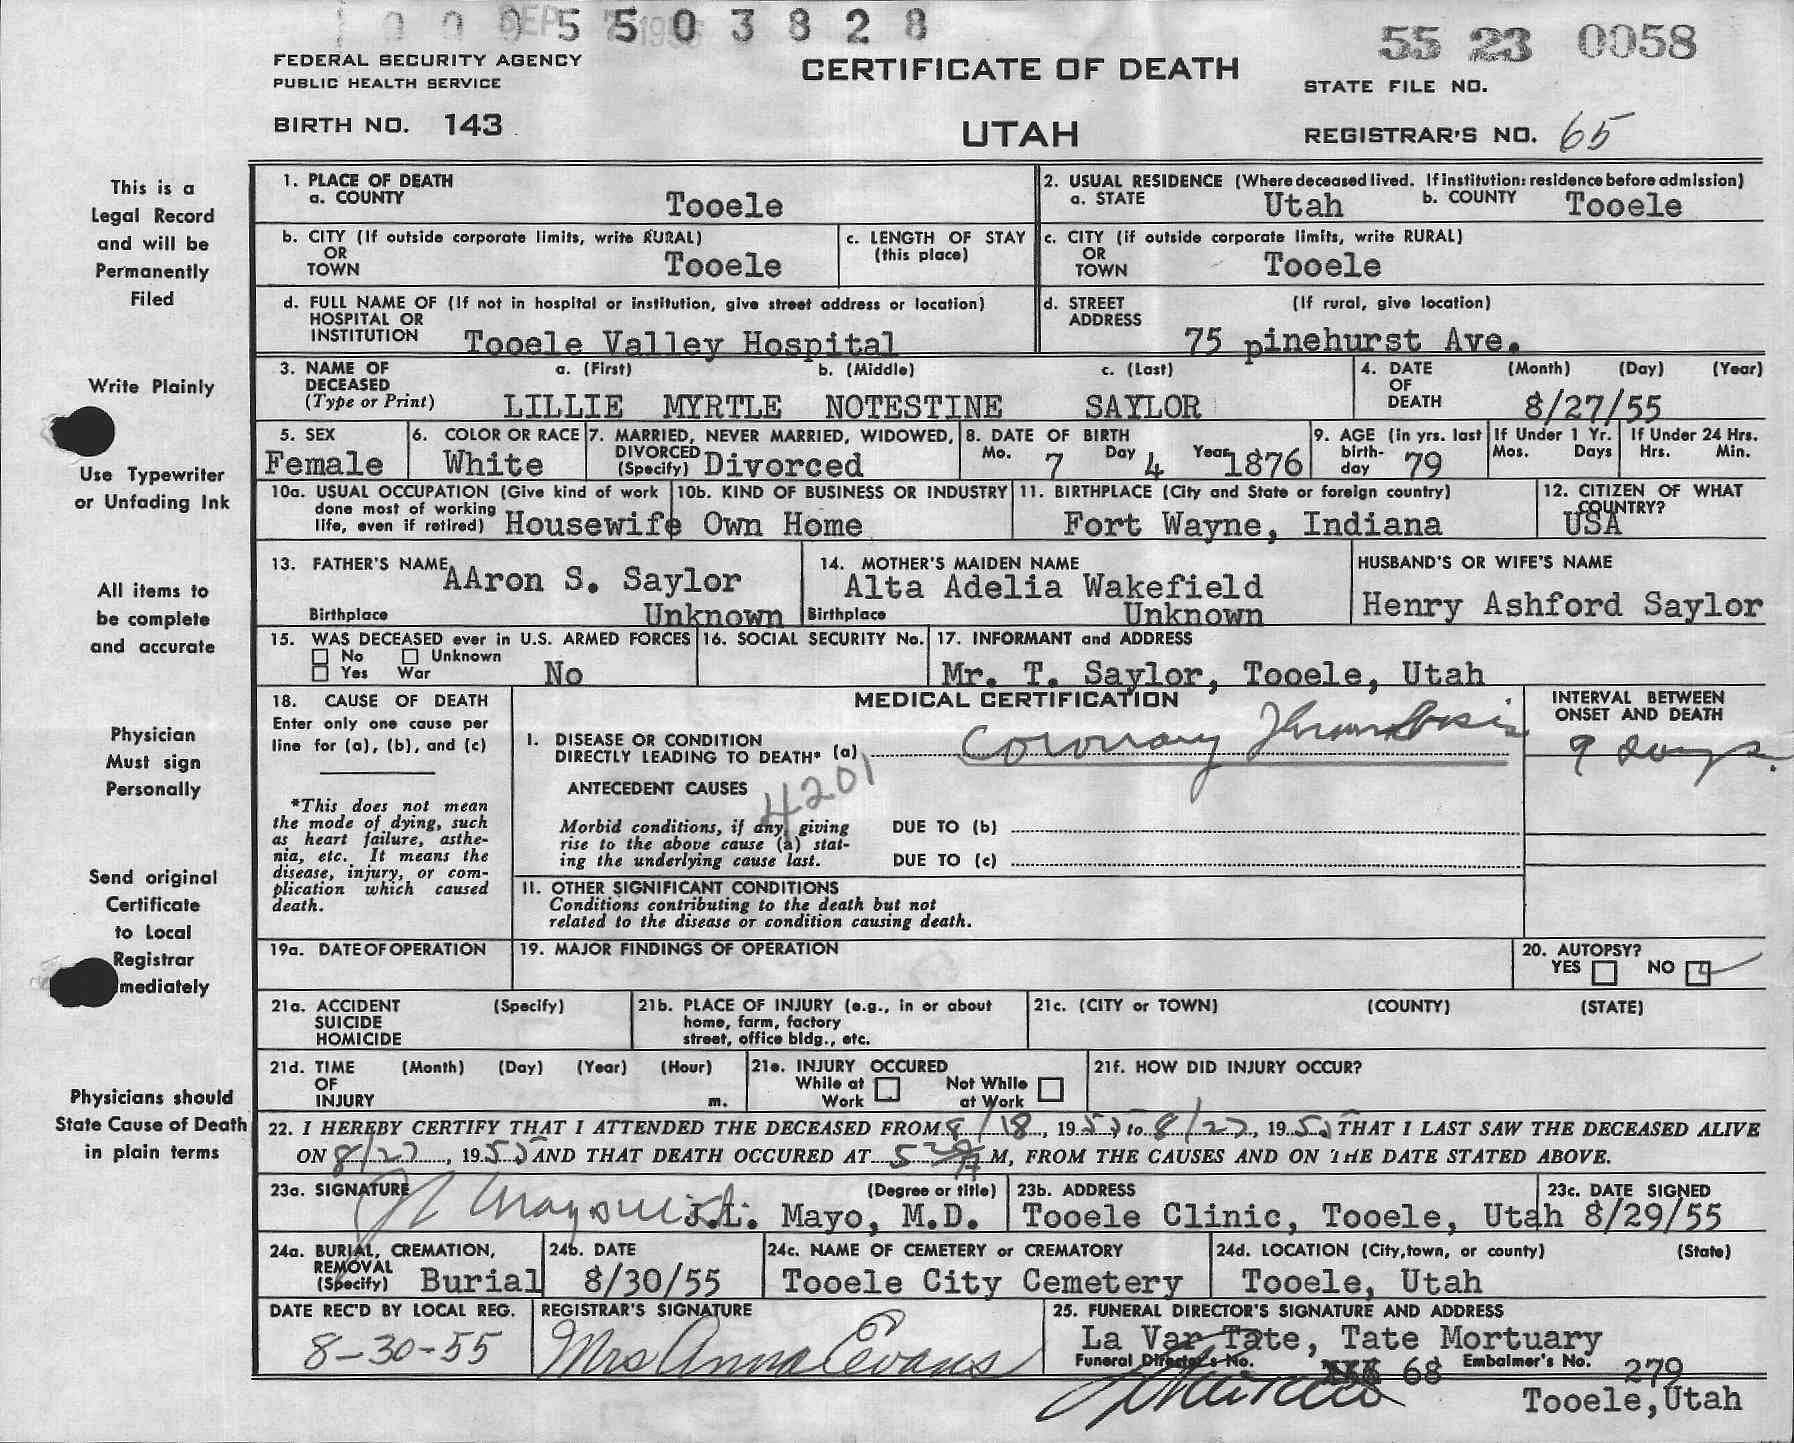 5503828
55 23 0058
FEDERAL SECURITY AGENCY
PUBLIC HEALTH SERVICE
CERTIFICATE OF DEATH
STATE FILE NO.
BIRTH NO. 143
UTAH
REGISTRAR'S NO. 65
This is a
Legal Record
and will be
Permanently
Filed
Write Plainly
Use Typewriter
or Unfading Ink
All items to
be complete
and accurate
Physician
Must sign
Personally
Send original
Certificate
to Local
Registrar
mediately
Physicians should
State Cause of Death
in plain terms
1. PLACE OF DEATH
a. COUNTY Tooele
2. USUAL RESIDENCE (Where deceased lived. If institution: residence before admission)
a. STATE Utah b. COUNTY Tooele
b. CITY (If outside corporate limits, write RURAL)
OR
TOWN Tooele
c. LENGTH OF STAY
(this place)
c. CITY (if outside corporate limits, write RURAL)
OR
TOWN Tooele
d. FULL NAME OF (If not in hospital or institution, give street address or location)
HOSPITAL OR
INSTITUTION Tooele Valley Hospital
d. STREET (If rural, give location)
ADDRESS 75 pinehurst Ave.
3. NAME OF a. (First) b. (Middle) c. (Last)
DECEASED
(Type or Print) LILLIE MYRTLE NOTESTINE SAYLOR
4. DATE (Month) (Day) (Year)
OF
DEATH 8/27/55
5. SEX
Female
6. COLOR OR RACE
White
7. MARRIED, NEVER MARRIED, WIDOWED,
DIVORCED
(Specify) Divorced
8. DATE OF BIRTH
Mo. 7 Day 4 Year 1876
9. AGE (in yrs. last
birth-
day 79
If Under 1 Yr.
Mos. Days
If Under 24 Hrs.
Hrs. Min.
10a. USUAL OCCUPATION (Give kind of work
done most of working
life, even if retired) Housewife
10b. KIND OF BUSINESS OR INDUSTRY
Own Home
11. BIRTHPLACE (City and State or foreign country)
Fort Wayne, Indiana
12. CITIZEN OF WHAT
COUNTRY?
USA
13. FATHER'S NAME AAron S. Saylor
Birthplace Unknown
14. MOTHER'S MAIDEN NAME
Alta Adelia Wakefield
Birthplace Unknown
HUSBAND'S OR WIFE'S NAME
Henry Ashford Saylor
15. WAS DECEASED ever in U.S. ARMED FORCES
No Unknown
Yes War No
16. SOCIAL SECURITY No.
17. INFORMANT and ADDRESS
Mr. T. Saylor, Tooele, Utah
18. CAUSE OF DEATH
Enter only one cause per
line for (a), (b), and (c)
*This does not mean
the mode of dying, such
as heart failure, asthe-
nia, etc. It means the
disease, injury, or com-
plication which caused
death.
MEDICAL CERTIFICATION
I. DISEASE OR CONDITION
DIRECTLY LEADING TO DEATH* (a) Coronary Thrombosis
INTERVAL BETWEEN
ONSET AND DEATH
9 days.
ANTECEDENT CAUSES
4201
Morbid conditions, if any, giving
rise to the above cause (a) stat-
ing the underlying cause last.
DUE TO (b)
DUE TO (c)
II. OTHER SIGNIFICANT CONDITIONS
Conditions contributing to the death but not
related to the disease or condition causing death.
19a. DATE OF OPERATION
19. MAJOR FINDINGS OF OPERATION
20. AUTOPSY?
YES NO
21a. ACCIDENT (Specify)
SUICIDE
HOMICIDE
21b. PLACE OF INJURY (e.g., in or about
home, farm, factory
street, office bldg., etc.
21c. (CITY or TOWN) (COUNTY) (STATE)
21d. TIME (Month) (Day) (Year) (Hour)
OF
INJURY m.
21e. INJURY OCCURED
While at Not While
Work at Work
21f. HOW DID INJURY OCCUR?
22. I HEREBY CERTIFY THAT I ATTENDED THE DECEASED FROM 8/18, 1955 to 8/27, 1955 THAT I LAST SAW THE DECEASED ALIVE
ON 8/27, 1955 AND THAT DEATH OCCURED AT 5 30 A M, FROM THE CAUSES AND ON THE DATE STATED ABOVE.
23a. SIGNATURE (Degree or title)
J.L. Mayo, M.D.
23b. ADDRESS
Tooele Clinic, Tooele, Utah
23c. DATE SIGNED
8/29/55
24a. BURIAL, CREMATION,
REMOVAL
(Specify) Burial
24b. DATE
8/30/55
24c. NAME OF CEMETERY or CREMATORY
Tooele City Cemetery
24d. LOCATION (City, town, or county) (State)
Tooele, Utah
DATE REC'D BY LOCAL REG.
8-30-55
REGISTRAR'S SIGNATURE
Mrs Anna Evans
25. FUNERAL DIRECTOR'S SIGNATURE AND ADDRESS
La Var Tate, Tate Mortuary
Funeral Director's No. 68 Embalmer's No. 279
Tooele, Utah